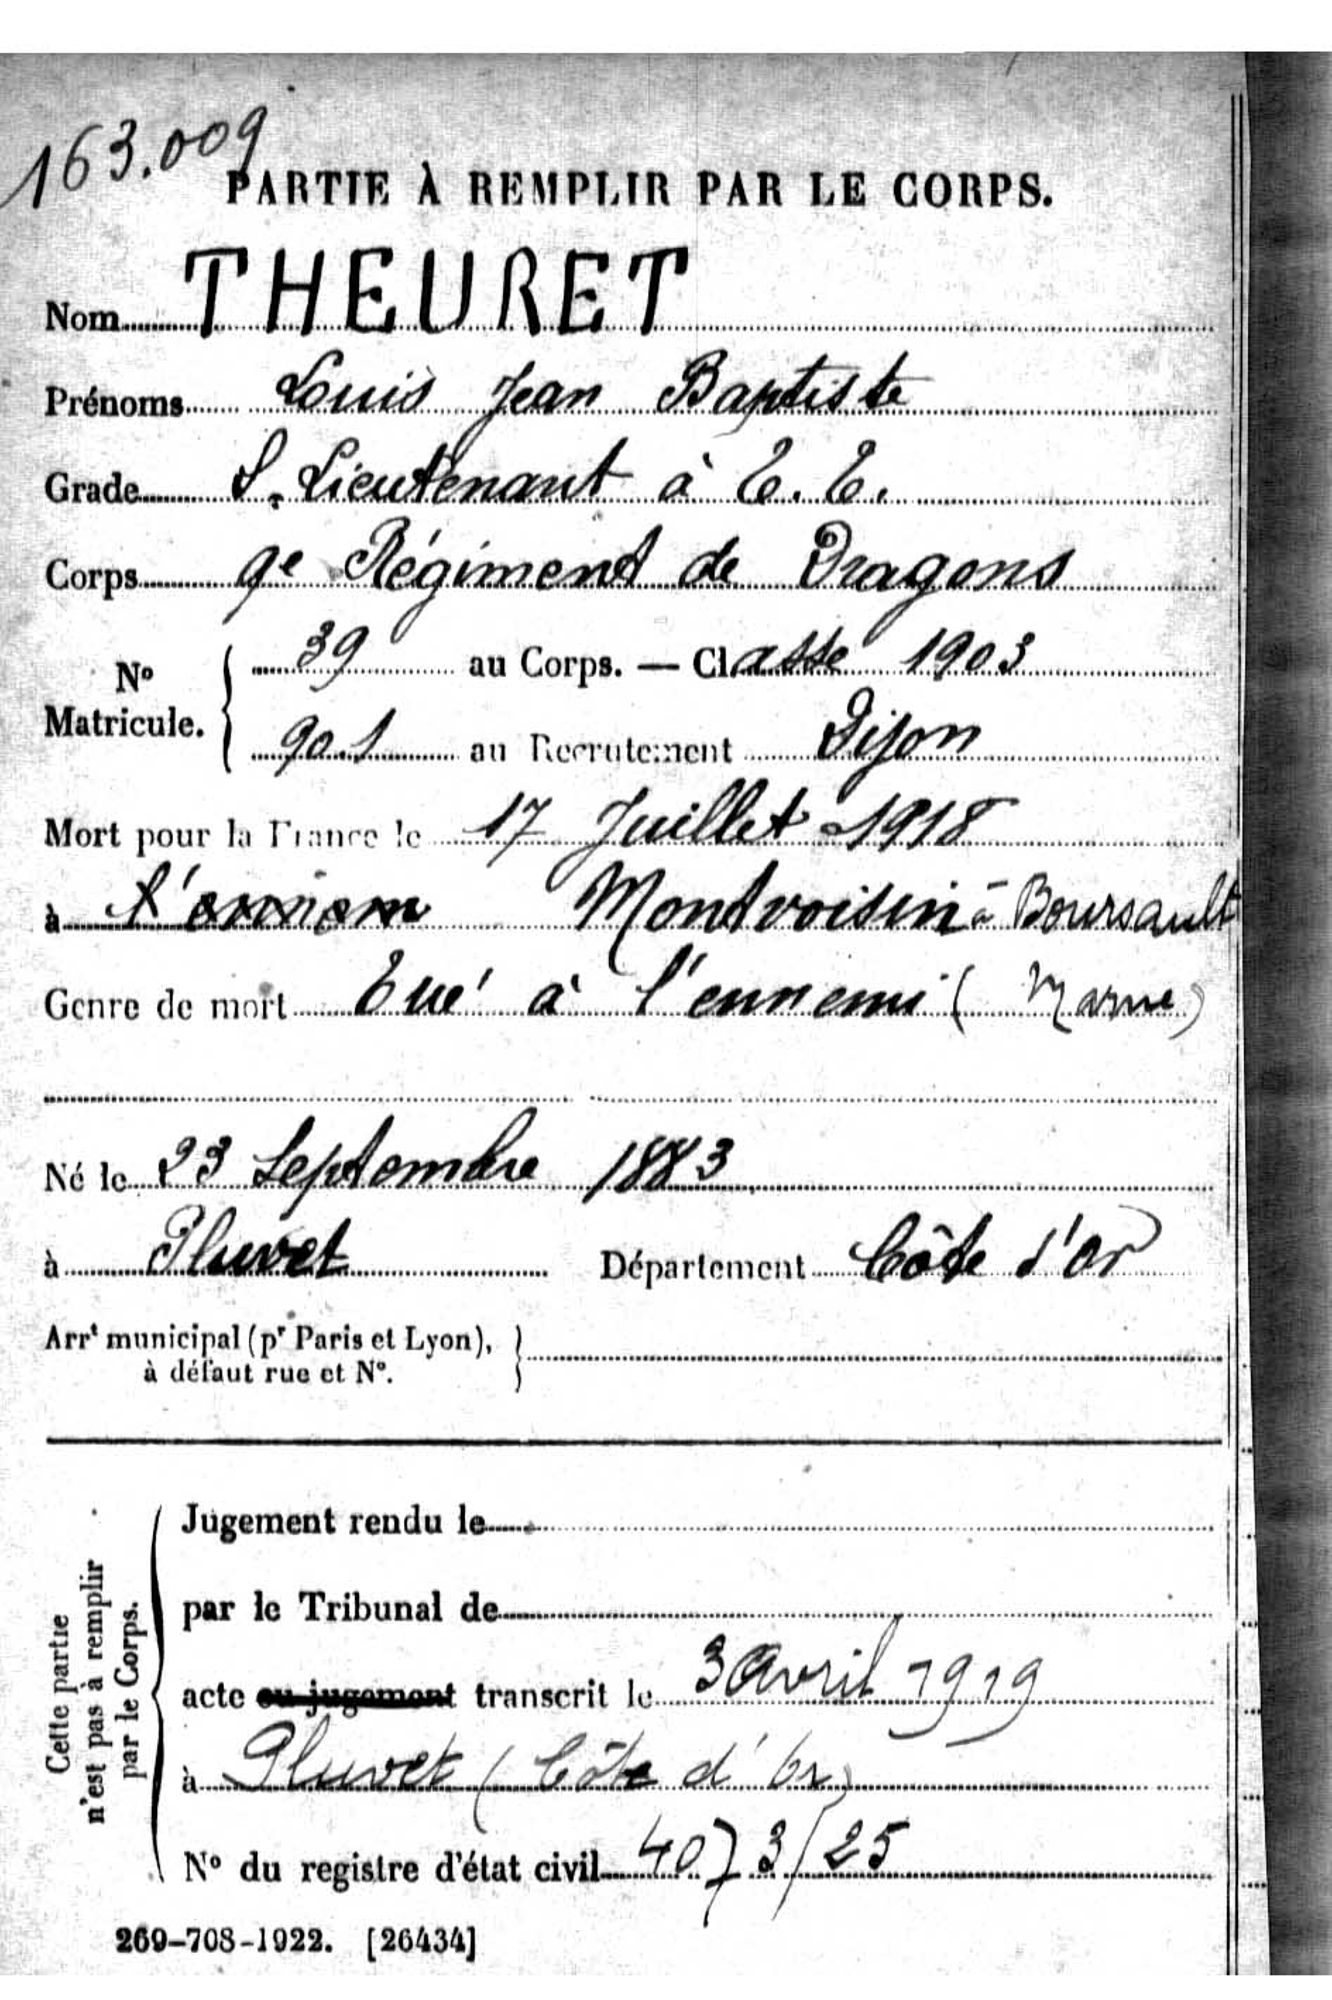 163.009
PARTIE À REMPLIR PAR LE CORPS.
Nom THEURET
Prénoms Louis Jean Baptiste
Grade S. Lieutenant à T. T.
Corps 9e Régiment de Dragons
No Matricule. { 39 au Corps. — Classe 1903
901 au Recrutement Dijon
Mort pour la France le 17 Juillet 1918
à l'ennem Montvoisin à Boursault
Genre de mort Tué à l'ennemi (Marne)
Né le 23 Septembre 1883
à Pluvet Département Côte d'Or
Arrt municipal (pr Paris et Lyon), }
à défaut rue et N°.
Cette partie
n'est pas à remplir
par le Corps.
Jugement rendu le
par le Tribunal de
acte ou jugement transcrit le 3 Avril 1919
à Pluvet (Côte d'Or)
N° du registre d'état civil 407 3/25
269-708-1922. [26434]